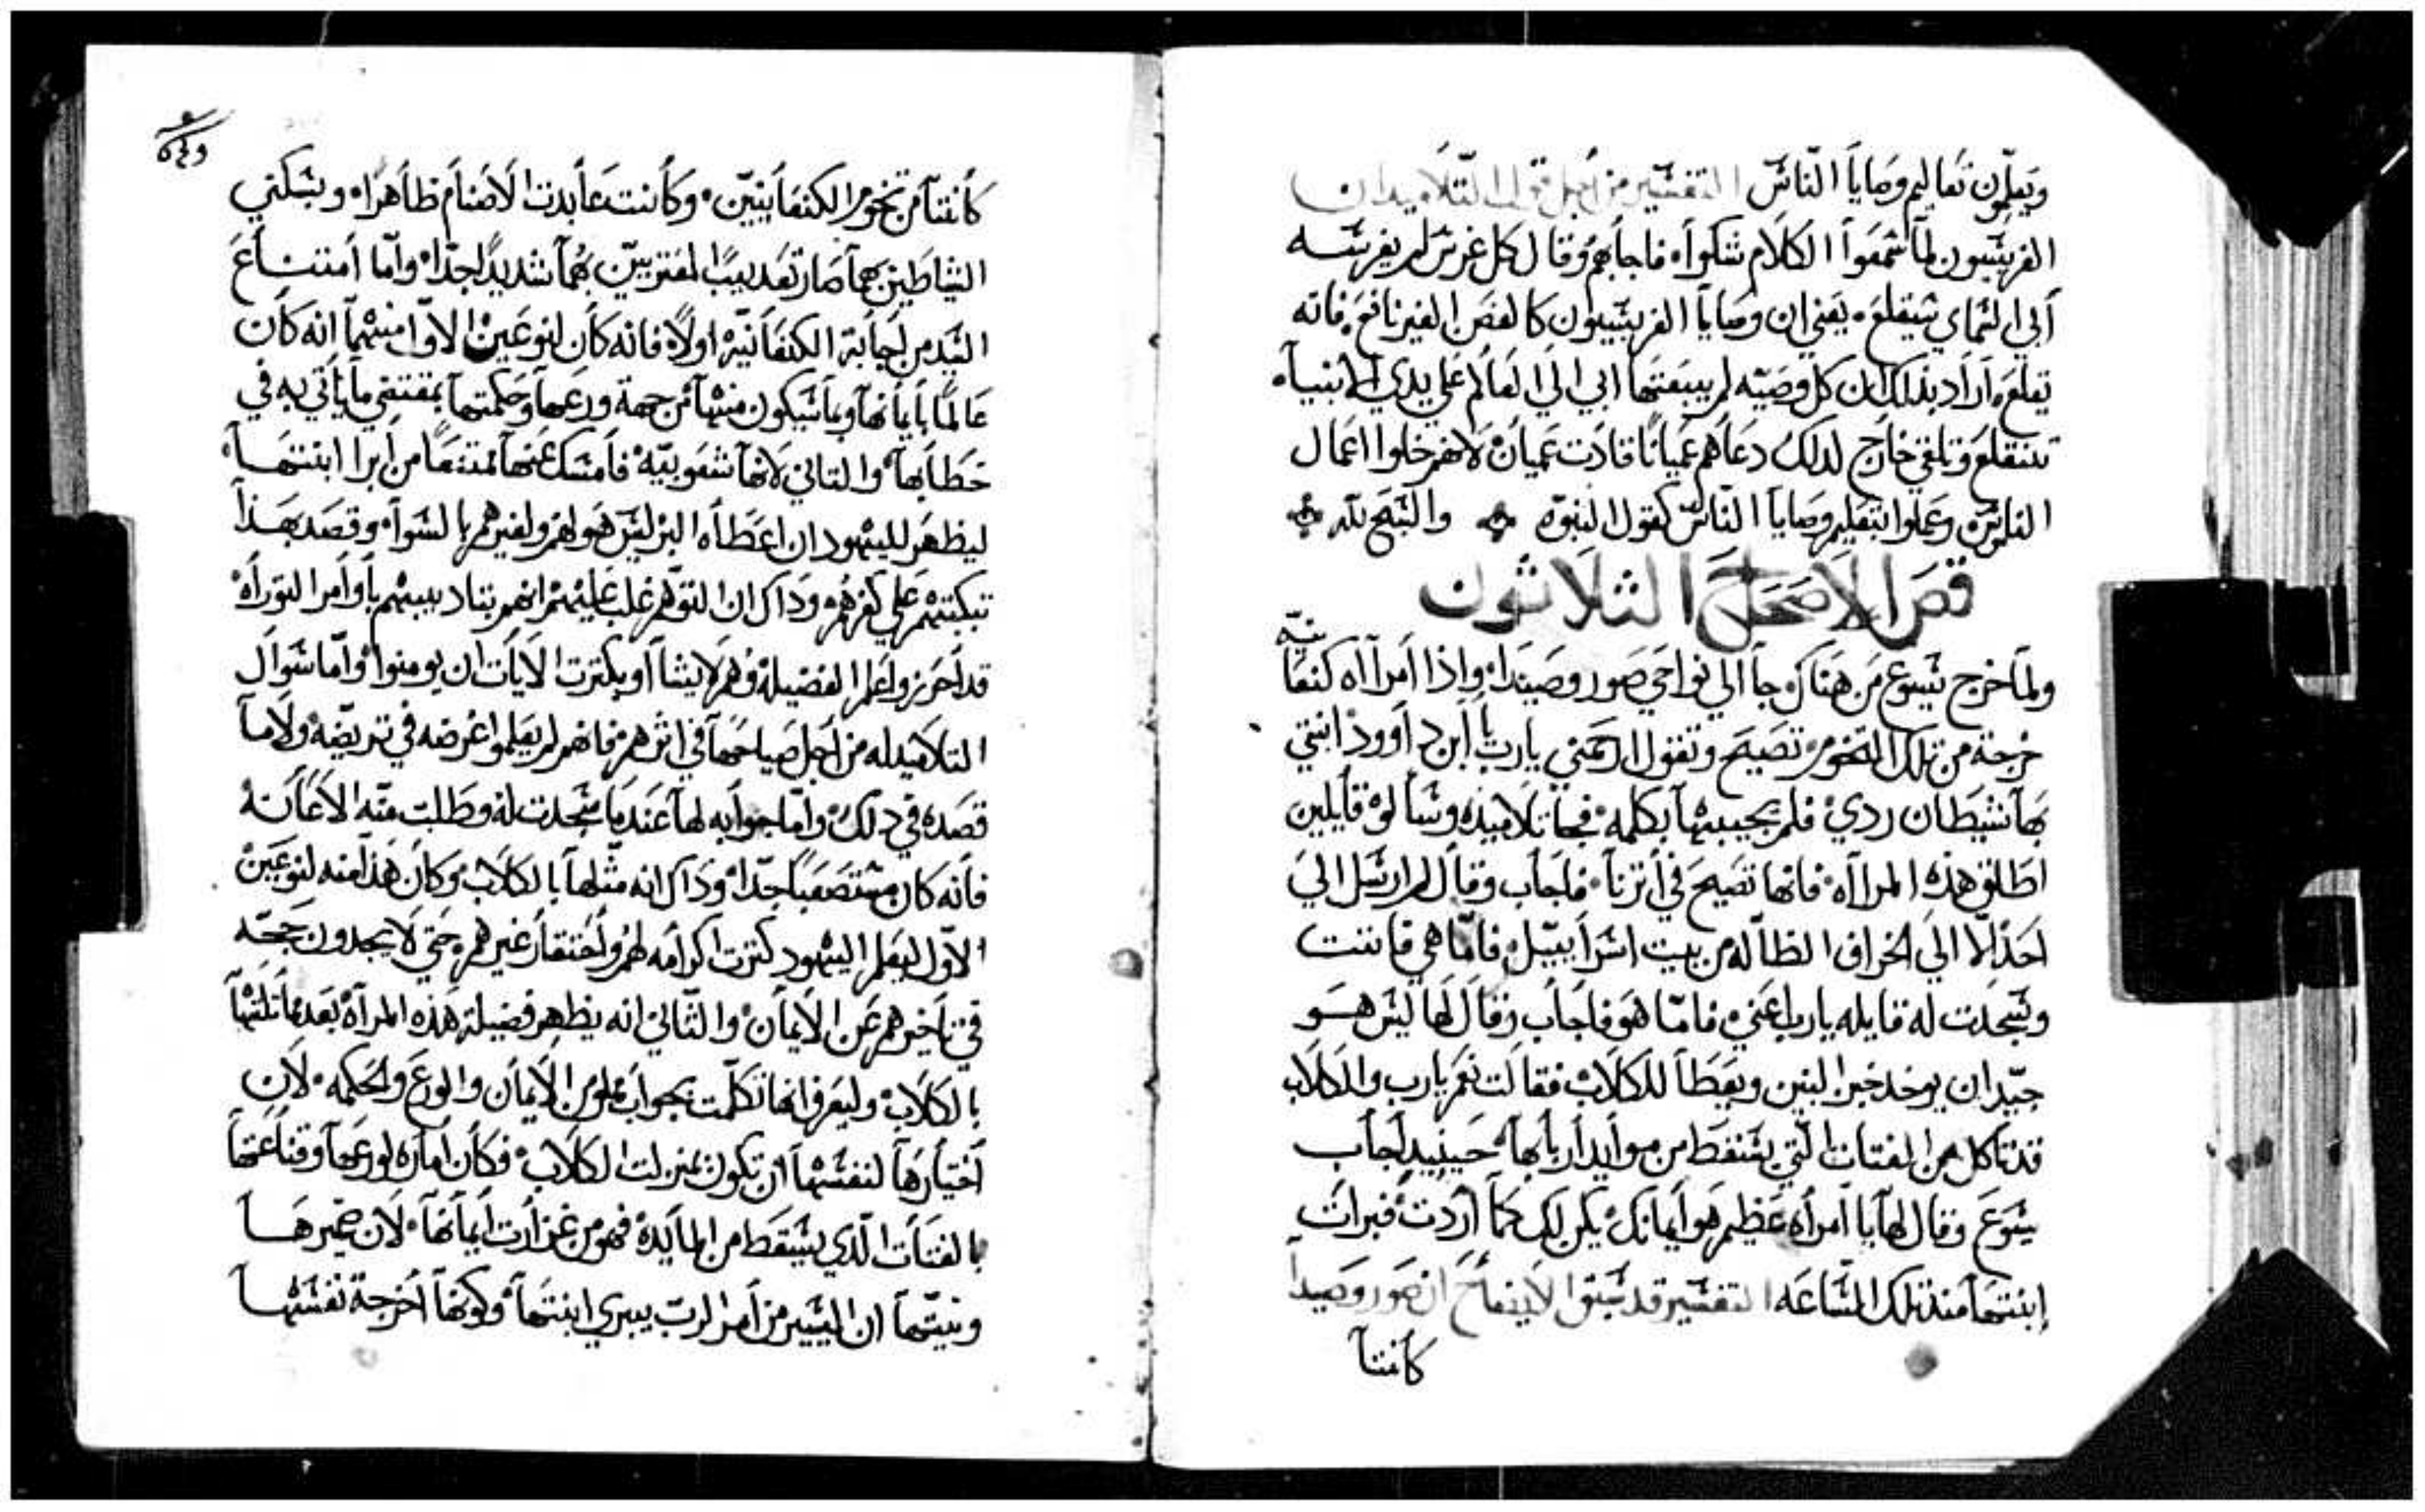 ويعلّمون تعاليم وصايا النّاس التفسير من اجل قول التّلاميد ان
الفريسيون لما سمعوا الكلام شكوا، فاجابهم وقال كل غرس لم يغرسه
ابي السماي سيقلع، يعني ان وصايا الفريسيون كالغصن الغير نافع، فانه
تقلع، اراد بذلك ان كل وصيّه لم يبعتها ابي الي العالم علي يدي الانبياء
تنقلع وتلقي خارج لدلك دعاهم عميانًا قادت عميان لانهم خلوا اعمال
الناموس، وعملوا بتعليم وصايا النّاس كقول النبوّه والسّبح للّه
قص الاصحاح الثلاثون
ولما خرج يسوع من هناك جا الي نواحي صور وصيدا، واذا امراه كنعانيّه
خرجة من تلك التخوم، تصيح وتقول ارحمني يارب يا ابن داوود ابنتي
بها شيطان ردي فلم يجيبها بكلمه، فجا تلاميذه وسالوه قايلين
اطلق هذه المرااه، فانها تصيح في اترنا، فاجاب وقال لم ارسل الي
احدًا الّا الي الخراف الظالّه من بيت اسراييل، فامّا هي فاتت
وسجدت له قايله يارب اعني، فامّا هو فاجاب وقال لها ليس هو
جيّد ان يوخد خبز البنين ويعطا للكلاب فقالت نعم يارب والكلاب
قد تاكل من الفتات الّتي يسقط من موايد اربابها، حينيد اجاب
يسوع وقال لها يا امراه عظيم هو ايمانك، يكن لك كما اردت، فبرات
ابنتها منذ تلك السّاعه التفسير قد سبق الايضاح ان صور وصيدا
كانتا
كانتا من تخوم الكنعانيين، وكانت عابدت الاصنام ظاهرًا، وبسكني
الشياطين بهما صار تعديب المعتريين بهما شديدًا جدًا، وامّا امتناع
السّيد من اجابة الكنعانيّه اولًا فانه كان لنوعين الاوّل منهما انه كان
عالمًا بايمانها وبما سيكون منها من جهة ورعها وحكمتها بمقتضي ما ياتي به في
خطابها والتاني لانها شعوبيّه، فامسك عنها ممتنعًا من ابرا ابنتها،
ليظهر لليهود ان اعطاه البر ليس هو لهم ولغيرهم بالسوا، وقصد بهذا
تبكتتهم علي كفرهم، وداك ان التوهّم غلب عليهم انهم بتاديبهم باوامر التوراه
قد احرزوا علم الفضيله وهم لايشااو بكترت الايات ان يومنوا وامّا سوال
التلاميد له من اجل صياحها في اترهم فانهم لم يعلموا غرضه في تريضه ولا ما
قصده في دلك، وامّا جوابه لها عند ما سجدت له وطلبت منه الاعانه
فانه كان مستصعبًا جدًا، وداك انه متّلها بالكلاب، وكان هذا منه لنوعين
الاوّل ليعلم اليهود كترت اكرامه لهم واحتقار غيرهم، حتي لا يجدون حجّه
في تاخيرهم عن الايمان، والتّاني انه يظهر فضيلة هذه المراه بعد ما تلتها
بالكلاب، وليعرف انها تكلّمت بجواب مملو من الايمان والورع والحكمه، لان
اختيارها لنفسها ان تكون بمنزلت الكلاب، فكان اماره لورعها وقناعتها
بالفتات الّدي يسقط من المايده فهو من غزارت ايمانها، لان ضميرها
ونيتها ان اليسير من امر الرب يبري ابنتها، وكونها اخرجة نفسها